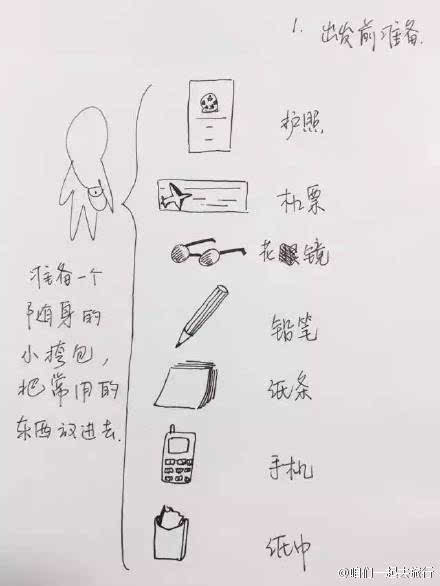 1. 出发前准备.
护照
机票
花镜
铅笔
纸条
手机
纸巾
准备一个
随身的
小挎包,
把常用的
东西放进去.
@咱们一起去旅行